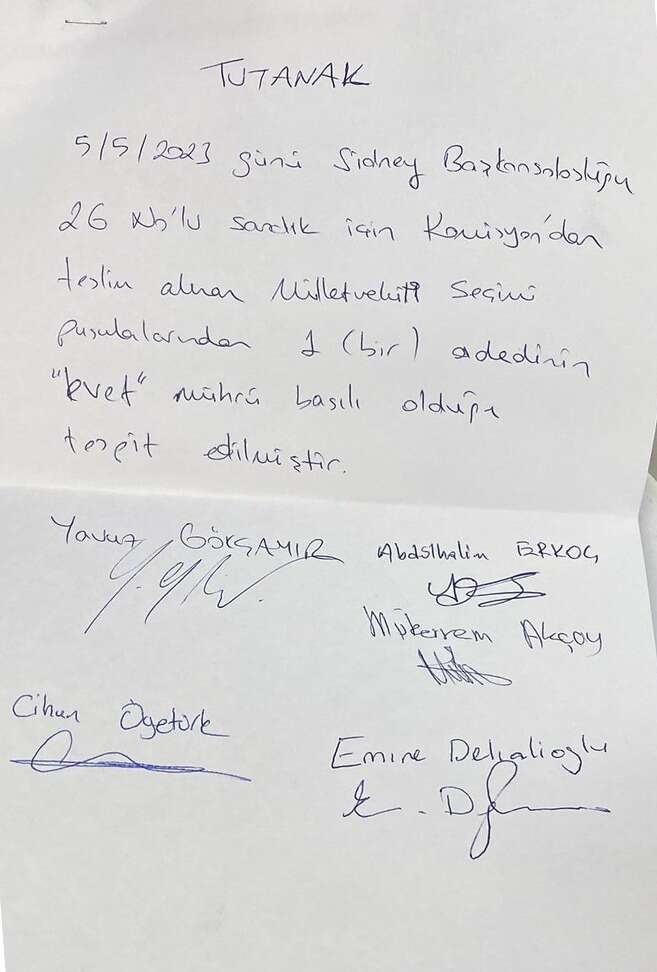 TUTANAK
5/5/2023 günü Sidney Başkonsolosluğu
26 No'lu sandık için Komisyon'dan
teslim alınan Milletvekili Seçimi
pusulalarından 1 (bir) adedinin
"Evet" mührü basılı olduğu
tespit edilmiştir.
Yavuz GÖKÇAYIR
Abdulhalim ERKOÇ
Mükerrem Akçay
Cihan Ögetürk
Emine